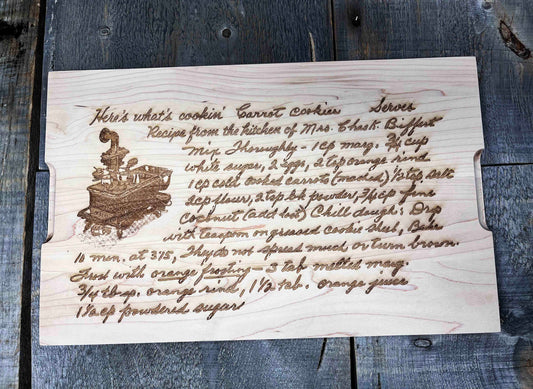 Here's what's cookin' Carrot cookies Serves
Recipe from the kitchen of Mrs. Chas. K. Biffert
Mix Thoroughly - 1 cp marg. ¾ cup
white sugar, 2 eggs, 2 tsp orange rind
1 cp cold cooked carrots (mashed) ½ tsp salt
2 cp flour, 2 tsp bk powder, ¾ cp fine
Coconut (add last) Chill dough: Drop
with teaspoon on greased cookie sheet, Bake
10 min. at 375, They do not spread much or turn brown.
Frost with orange frosting - 3 tab melted marg.
orange rind, 1½ tab. orange juice
1½ cp powdered sugar